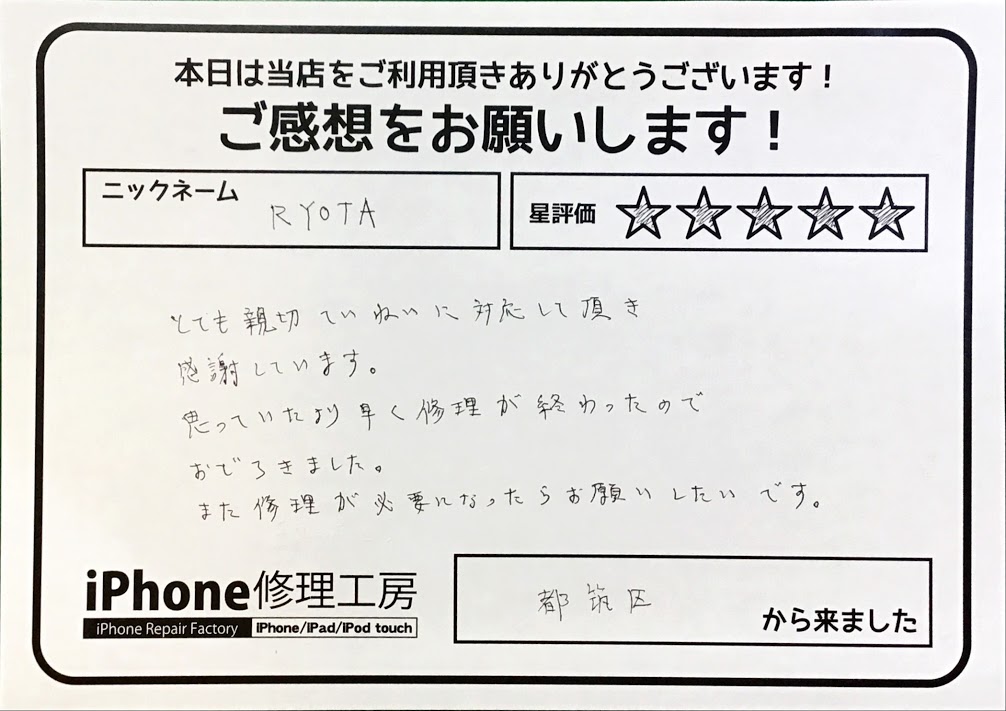 本日は当店をご利用頂きありがとうございます！
ご感想をお願いします！
ニックネーム RYOTA
星評価
とても親切ていねいに対応して頂き
感謝しています。
思っていたより早く修理が終わったので
おどろきました。
また修理が必要になったらお願いしたいです。
iPhone修理工房
iPhone Repair Factory iPhone/iPad/iPod touch
都筑区 から来ました